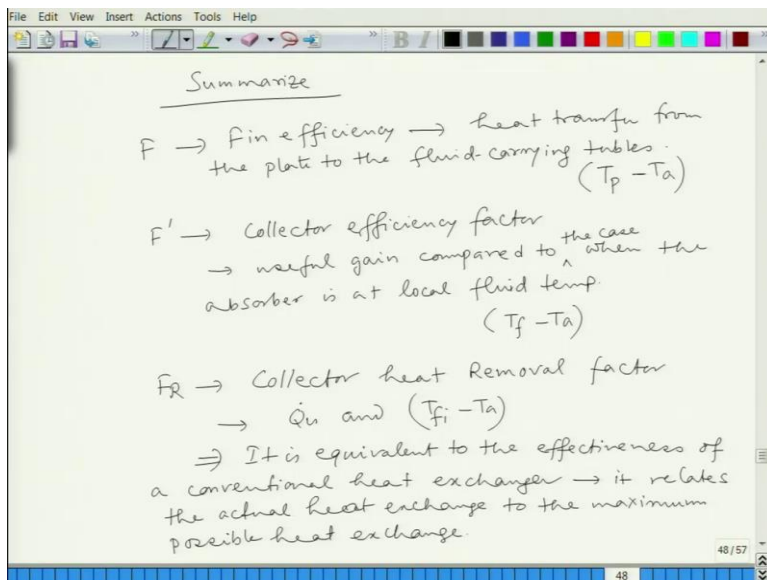 File Edit View Insert Actions Tools Help
Summarize
F → Fin efficiency → heat transfer from
the plate to the fluid-carrying tubbes.
(Tp - Ta)
F' → Collector efficiency factor
→ useful gain compared to the case when the
absorber is at local fluid temp.
(Tf - Ta)
FR → Collector heat Removal factor
→ Q̇u and (Tfi - Ta)
⇒ It is equivalent to the effectiveness of
a conventional heat exchanger → it relates
the actual heat exchange to the maximum
possible heat exchange.
48/57
48